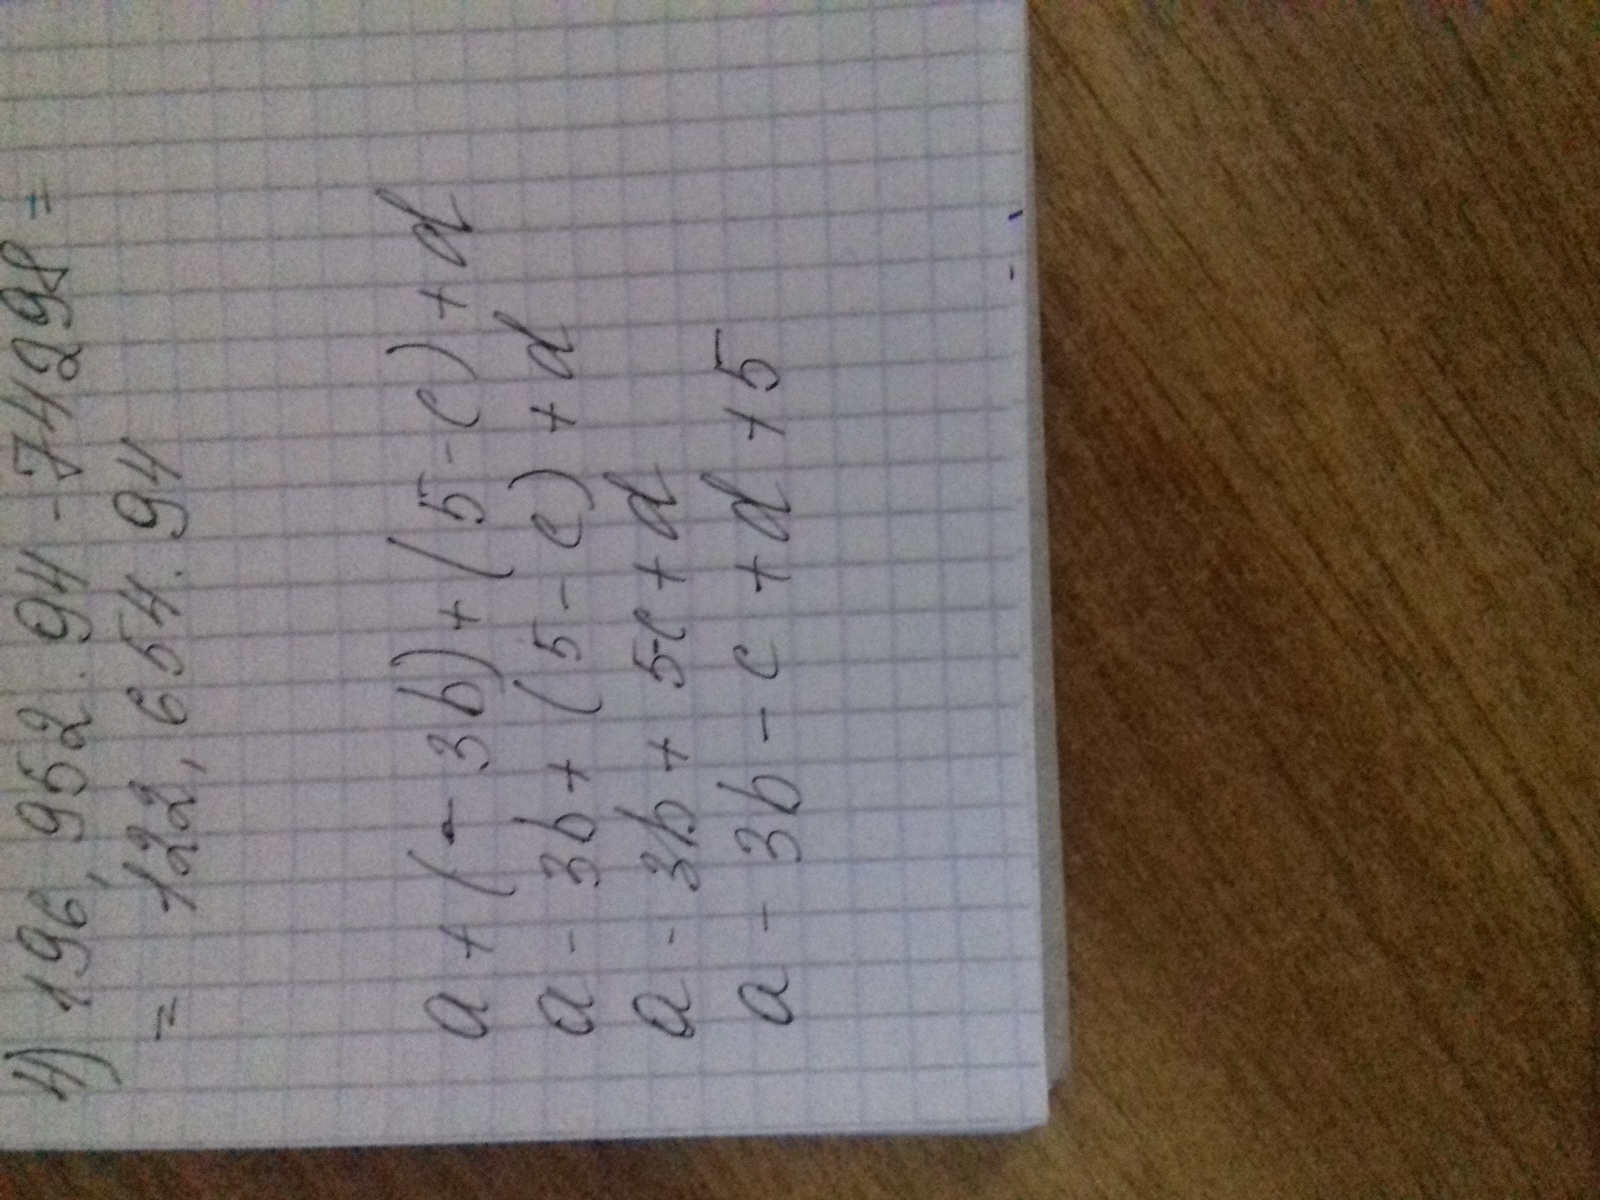 4) 196,952.94 - 74298 =
= 122,654.94
a + (- 3b) + (5 - c) + d
a - 3b + (5 - c) + d
a - 3b + 5-c + d
a - 3b - c + d + 5